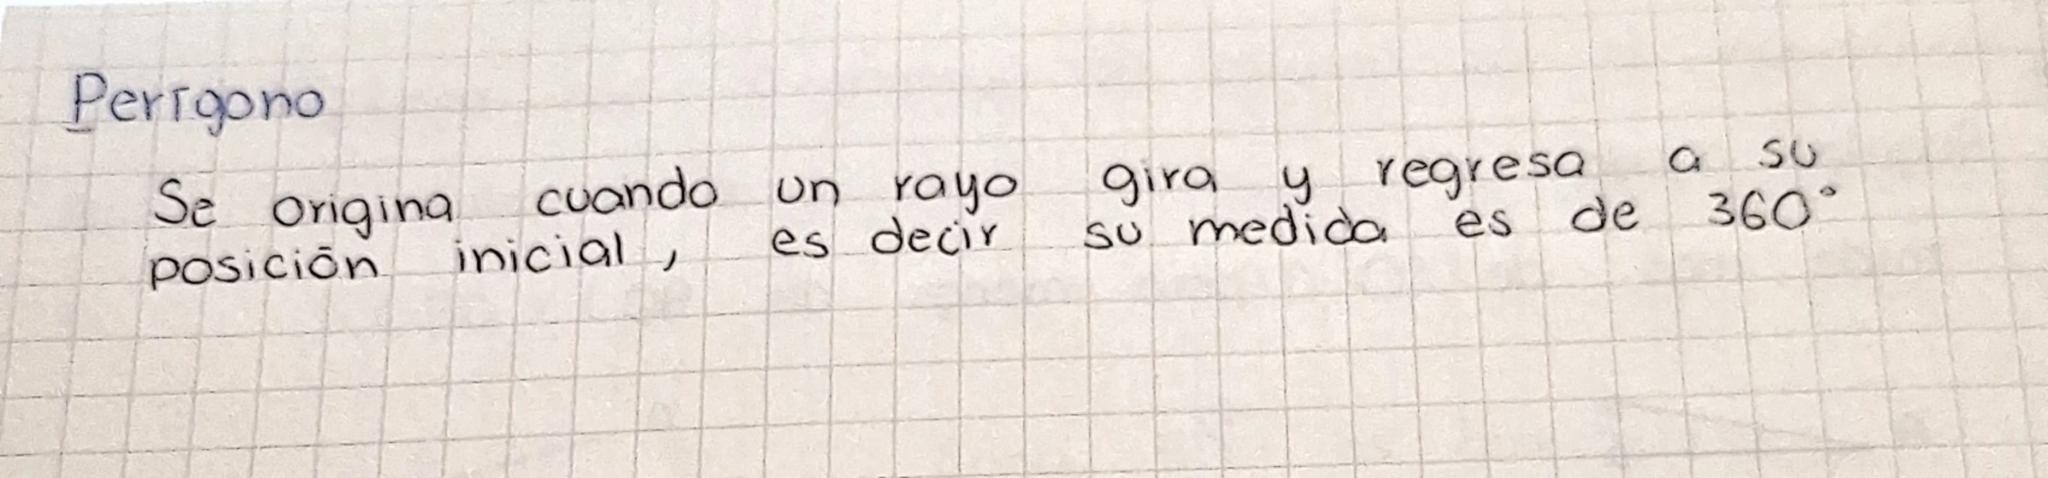 Perígono
Se origina cuando un rayo gira y regresa a su
posición inicial, es decir su medida es de 360°